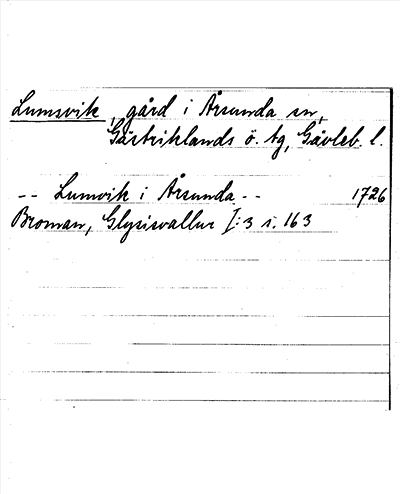 Lumsvik, gård i Årsunda sn,
Gästriklands ö. tg, Gävleb. l.
-- Lumvik i Årsunda -- 1726
Broman, Glysisvallur I:3 s. 163